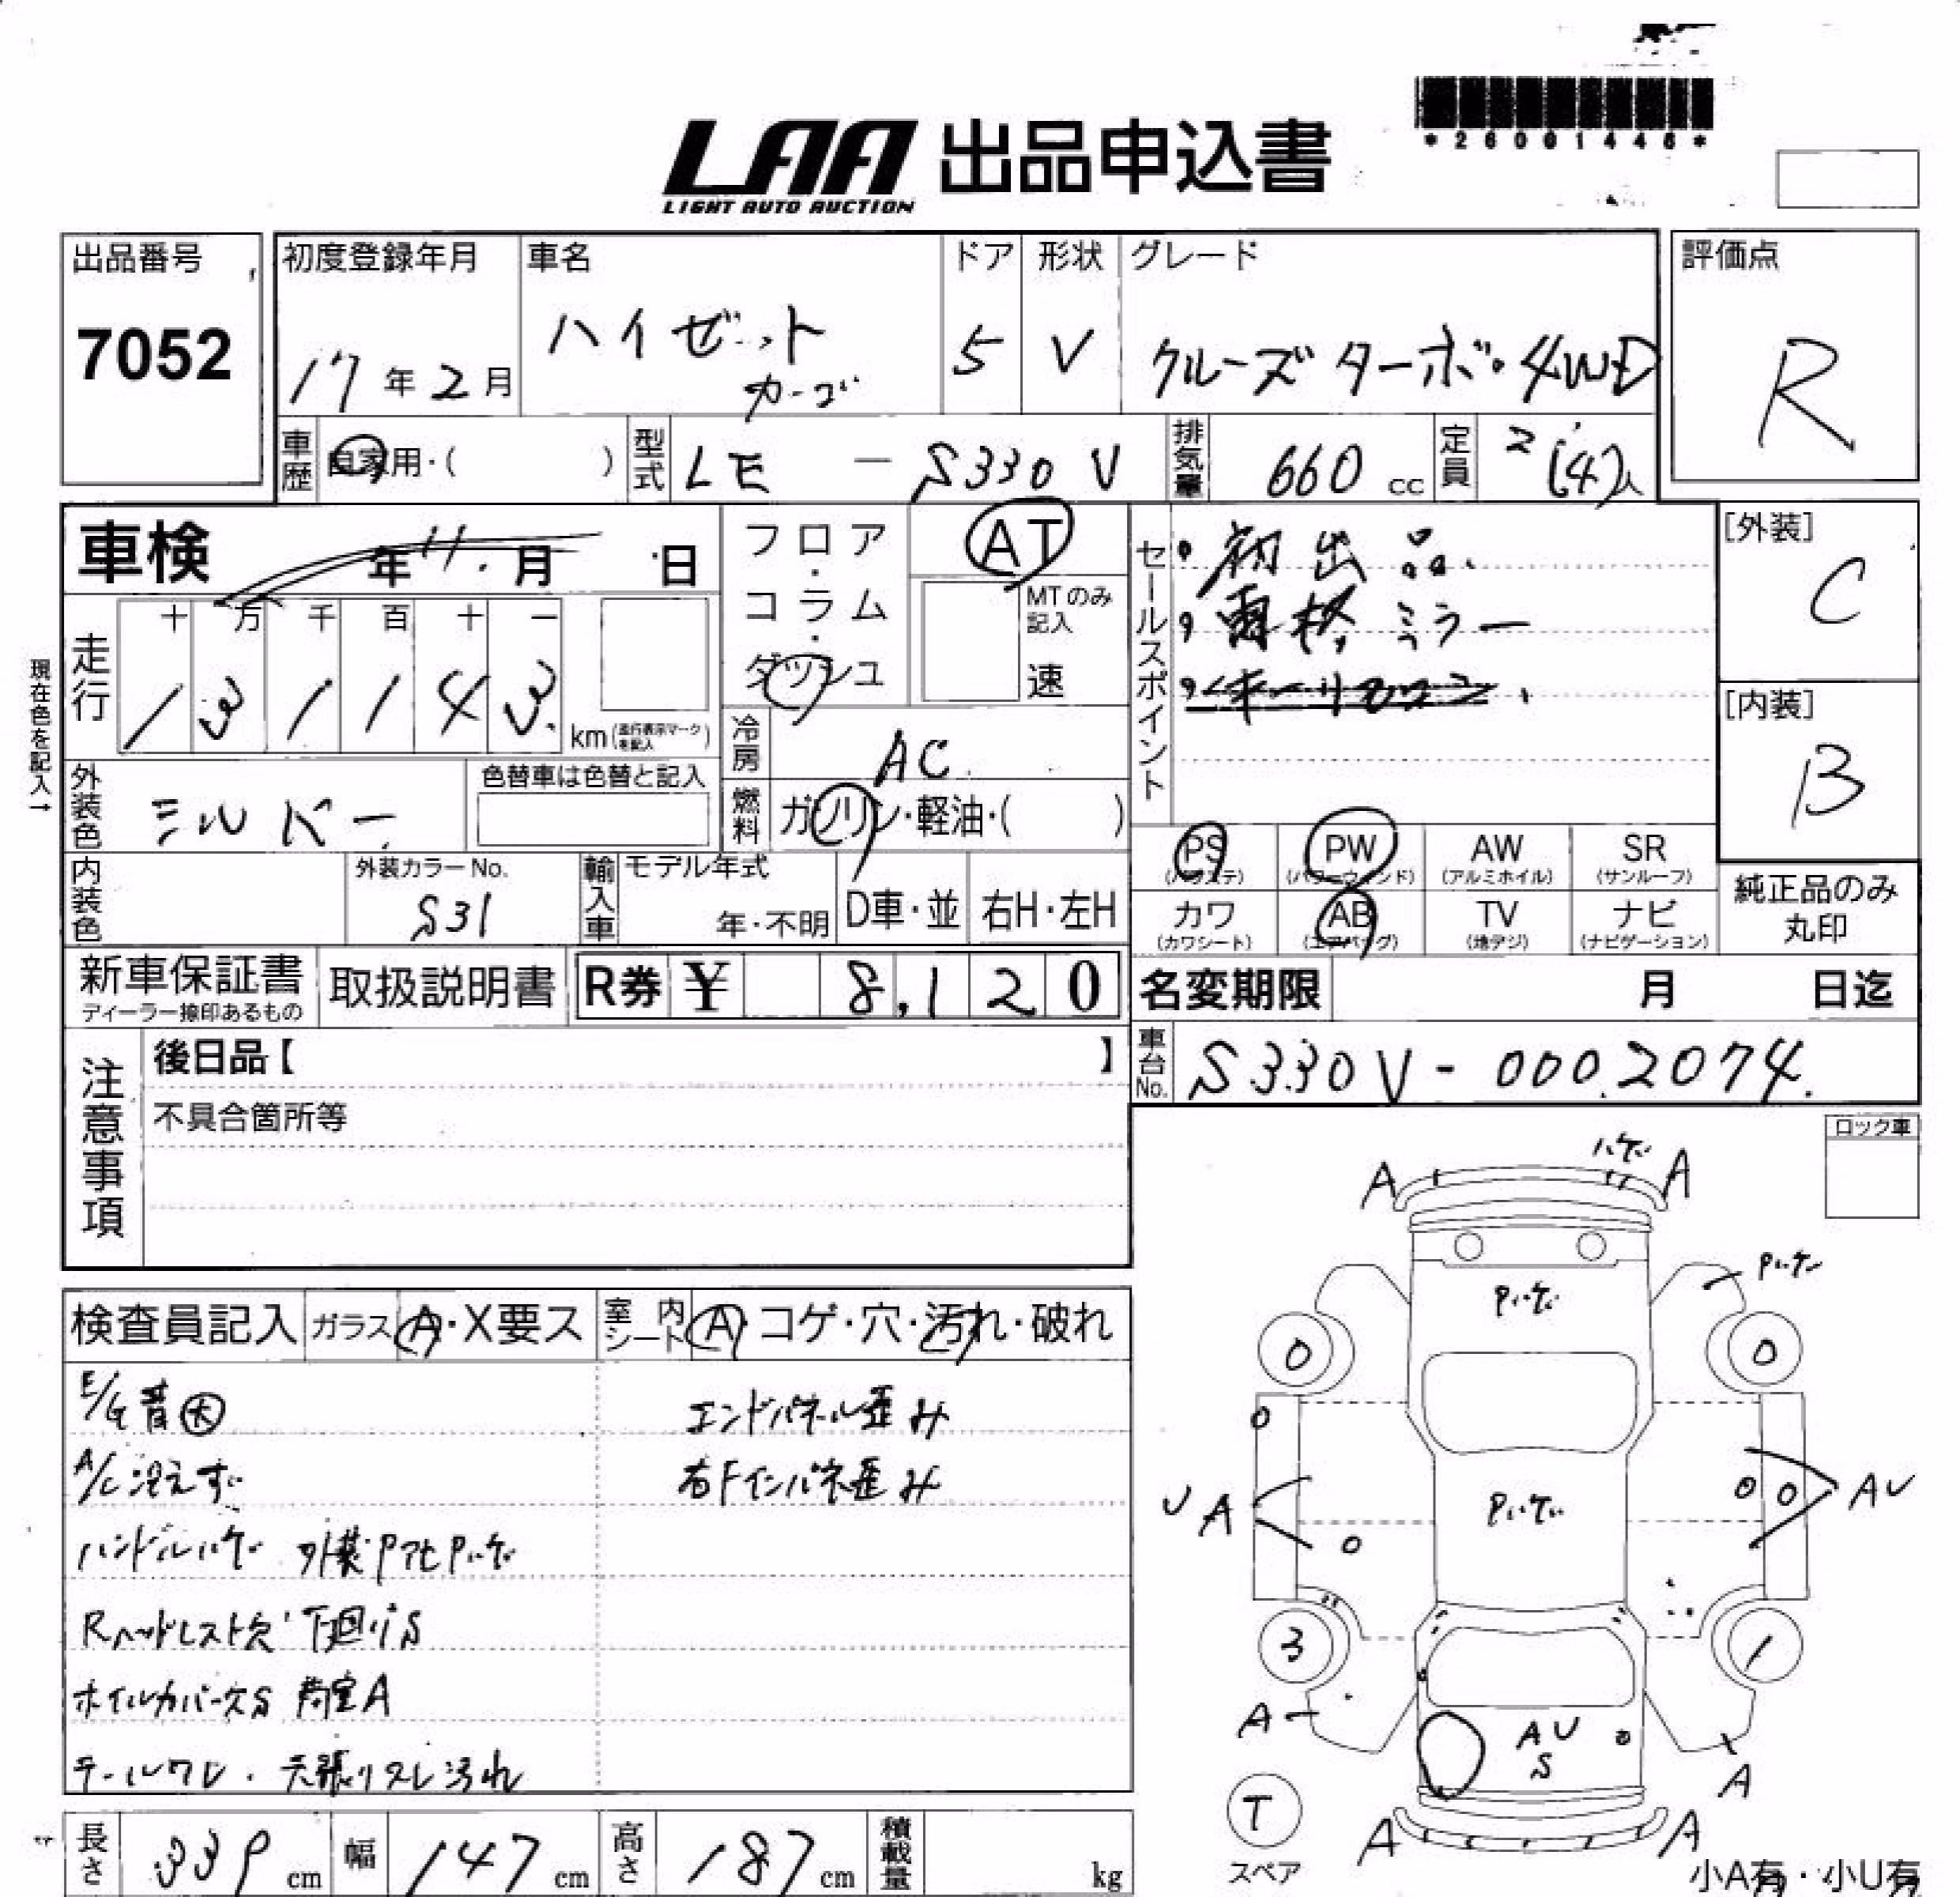 *26001446*
LAA 出品申込書
LIGHT AUTO AUCTION
出品番号
7052
初度登録年月
17年2月
車名
ハイゼット
カーゴ
ドア
5
形状
V
グレード
クルーズターボ・4WD
評価点
R
車歴 自家用・( )
型式 LE - S330V
排気量 660 cc
定員 2(4)人
車検 年 11. 月 日
走行 十 万 千 百 十 一
1 3 1 1 4 3
km(走行表示マークを記入)
現在色を記入→
フロア・コラム・ダッシュ
AT
MTのみ記入
速
冷房 AC
燃料 ガソリン・軽油・( )
セールスポイント
初出品.
電格ミラー
キーリモコン
[外装]
C
[内装]
B
外装色 シルバー
色替車は色替と記入
内装色
外装カラーNo.
S31
輸入車 モデル年式
年・不明 D車・並 右H・左H
PS (パワステ) PW (パワーウィンド) AW (アルミホイル) SR (サンルーフ)
カワ (カワシート) AB (エアバッグ) TV (地デジ) ナビ (ナビゲーション)
純正品のみ丸印
新車保証書
ディーラー捺印あるもの
取扱説明書
R券 ¥ 8,120
名変期限 月 日迄
注意事項
後日品【 】
不具合箇所等
車台No. S330V-0002074.
ロック車
検査員記入 ガラス A・X要ス 室内シート A・コゲ・穴・汚れ・破れ
E/G音大 エンドパネル歪み
A/C冷えず 右Fインパネ歪み
ハンドルハゲ 外装Pアセ Pハゲ
Rヘッドレスト欠 下廻りS
ホイルカバー欠S 荷室A
テールワレ・天張りスレ汚れ
長さ 339 cm 幅 147 cm 高さ 187 cm 積載量 kg
ハゲ
A A
Pハゲ
Pハゲ
0 0
Pハゲ
U A
AU
3 1
A
AU
S
A
T
スペア
A A
小A有・小U有